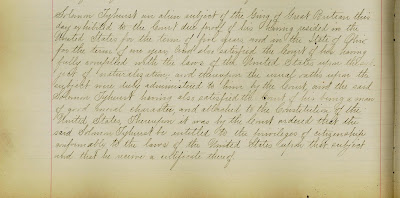 Solomon Tyhurst an alien subject of the King of Great Britian this
day exhibited to the Court due proof of his having resided in the
United States for the term of five years and in the State of Ohio
for the term of one year and also satisfied the Court of his having
fully complied with the laws of the United States upon the sub-
ject of naturalization and thereupon the usual oaths upon the
subject were duly administered to him by the Court, and the said
Solomon Tyhurst having also satisfied the Court of his being a man
of good moral character and attached to the Constitution of the
United States Thereupon it was by the Court ordered that the
said Solomon Tyhurst be entitled to the privileges of citizenship
conformably to the laws of the United States upon that subject
and that he receive a certificate thereof